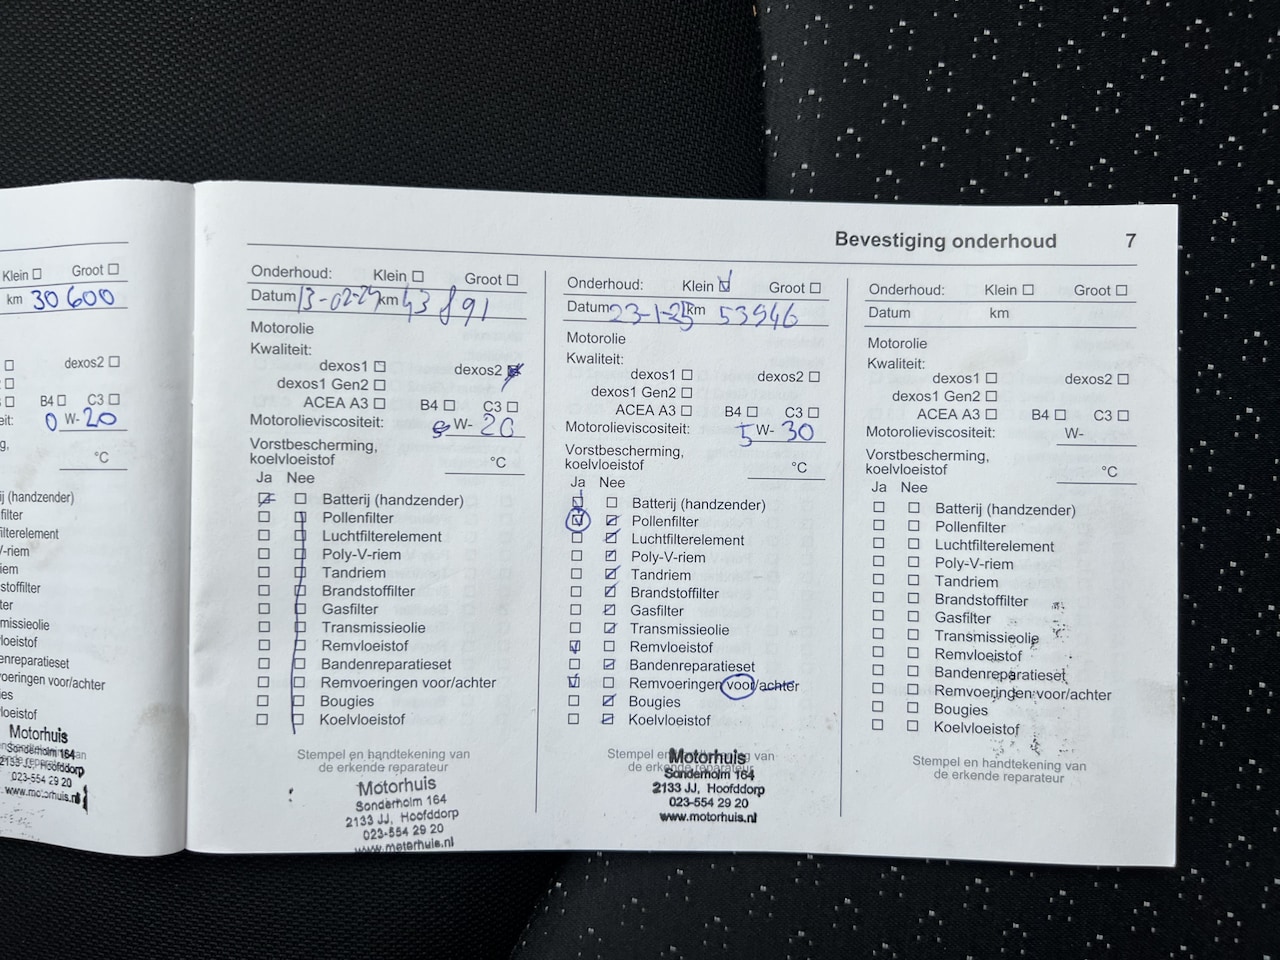 Klein Groot
km 30600
dexos2
B4 C3
eit: 0 W- 20
g,
°C
ij (handzender)
filter
ilterelement
V-riem
iem
stoffilter
ter
missieolie
vloeistof
enreparatieset
voeringen voor/achter
ies
vloeistof
Motorhuis
Sonderholm 164
2133 JJ, Hoofddorp
023-554 29 20
www.motorhuis.nl
Bevestiging onderhoud 7
Onderhoud: Klein Groot
Datum 13-02-24 km 43891
Motorolie
Kwaliteit:
dexos1 dexos2
dexos1 Gen2
ACEA A3 B4 C3
Motorolieviscositeit: W- 20
Vorstbescherming,
koelvloeistof °C
Ja Nee
Batterij (handzender)
Pollenfilter
Luchtfilterelement
Poly-V-riem
Tandriem
Brandstoffilter
Gasfilter
Transmissieolie
Remvloeistof
Bandenreparatieset
Remvoeringen voor/achter
Bougies
Koelvloeistof
Stempel en handtekening van
de erkende reparateur
Motorhuis
Sonderholm 164
2133 JJ, Hoofddorp
023-554 29 20
www.motorhuis.nl
Onderhoud: Klein Groot
Datum 23-1-25 km 53946
Motorolie
Kwaliteit:
dexos1 dexos2
dexos1 Gen2
ACEA A3 B4 C3
Motorolieviscositeit: 5 W- 30
Vorstbescherming,
koelvloeistof °C
Ja Nee
Batterij (handzender)
Pollenfilter
Luchtfilterelement
Poly-V-riem
Tandriem
Brandstoffilter
Gasfilter
Transmissieolie
Remvloeistof
Bandenreparatieset
Remvoeringen voor/achter
Bougies
Koelvloeistof
Stempel en handtekening van
de erkende reparateur
Motorhuis
Sonderholm 164
2133 JJ, Hoofddorp
023-554 29 20
www.motorhuis.nl
Onderhoud: Klein Groot
Datum km
Motorolie
Kwaliteit:
dexos1 dexos2
dexos1 Gen2
ACEA A3 B4 C3
Motorolieviscositeit: W-
Vorstbescherming,
koelvloeistof °C
Ja Nee
Batterij (handzender)
Pollenfilter
Luchtfilterelement
Poly-V-riem
Tandriem
Brandstoffilter
Gasfilter
Transmissieolie
Remvloeistof
Bandenreparatieset
Remvoeringen voor/achter
Bougies
Koelvloeistof
Stempel en handtekening van
de erkende reparateur